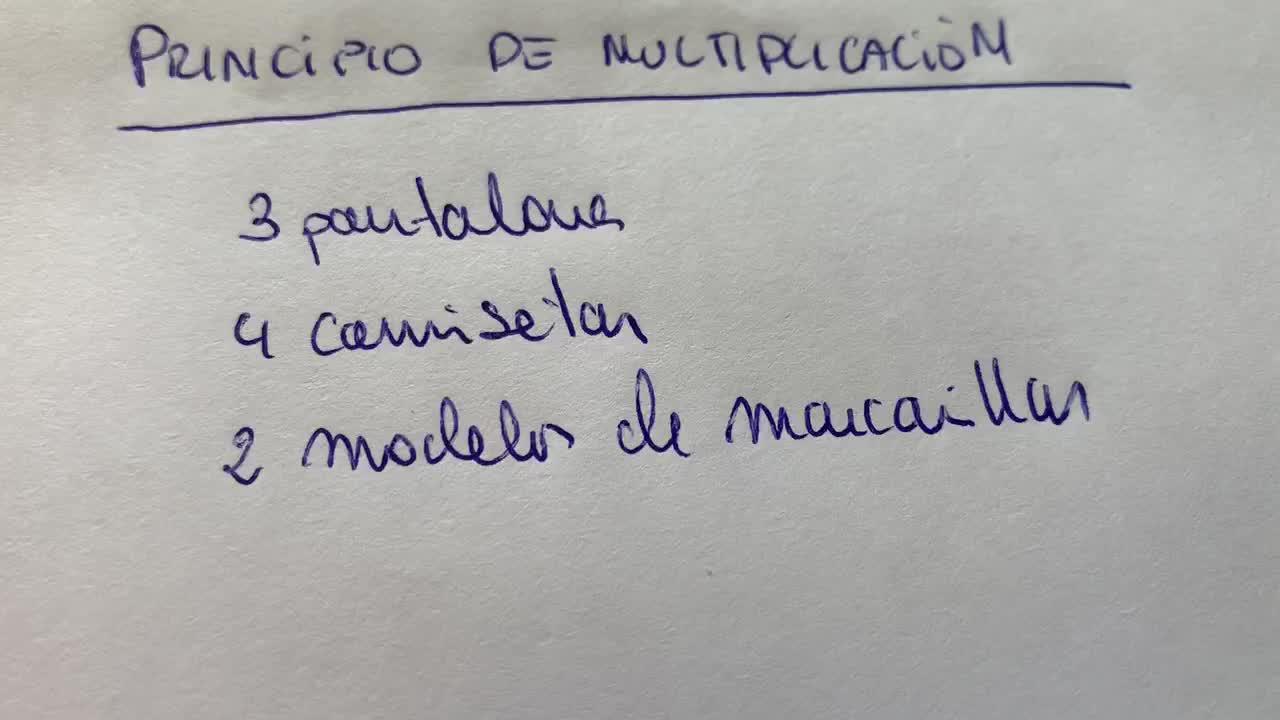 PRINCIPIO DE MULTIPLICACIÓN
3 pantalones
4 camisetas
2 modelos de mascarillas